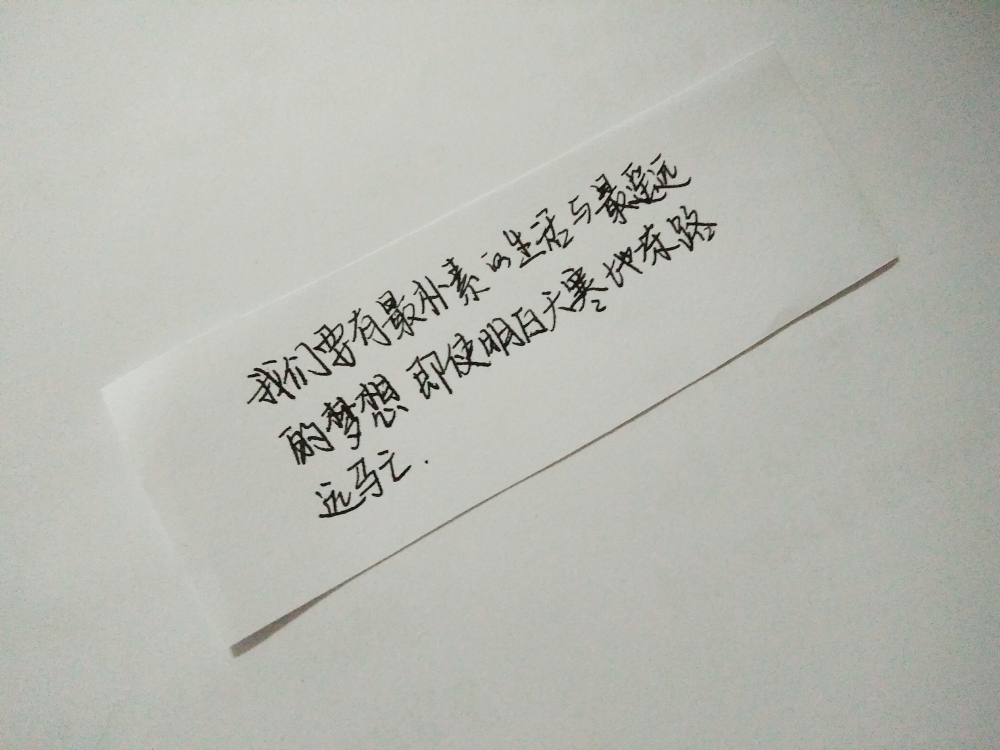 我们要有最朴素的生活与最遥远
的梦想 即使明白天寒地冻路
远马亡.